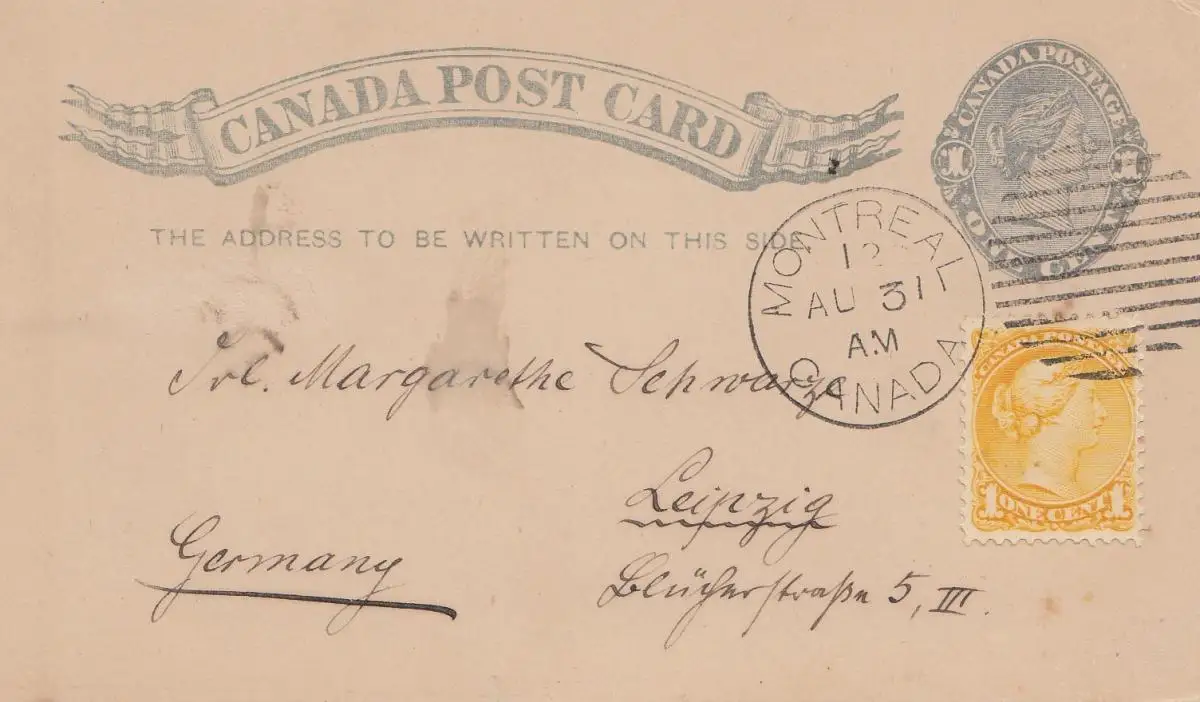 CANADA POST CARD
CANADA POSTAGE
1 1
ONE CENT
THE ADDRESS TO BE WRITTEN ON THIS SIDE
MONTREAL
12
AU 31
AM
CANADA
Frl. Margarethe Schwarze
CANADA POSTAGE
1 ONE CENT 1
Leipzig
Germany
Blücherstraße 5, III.